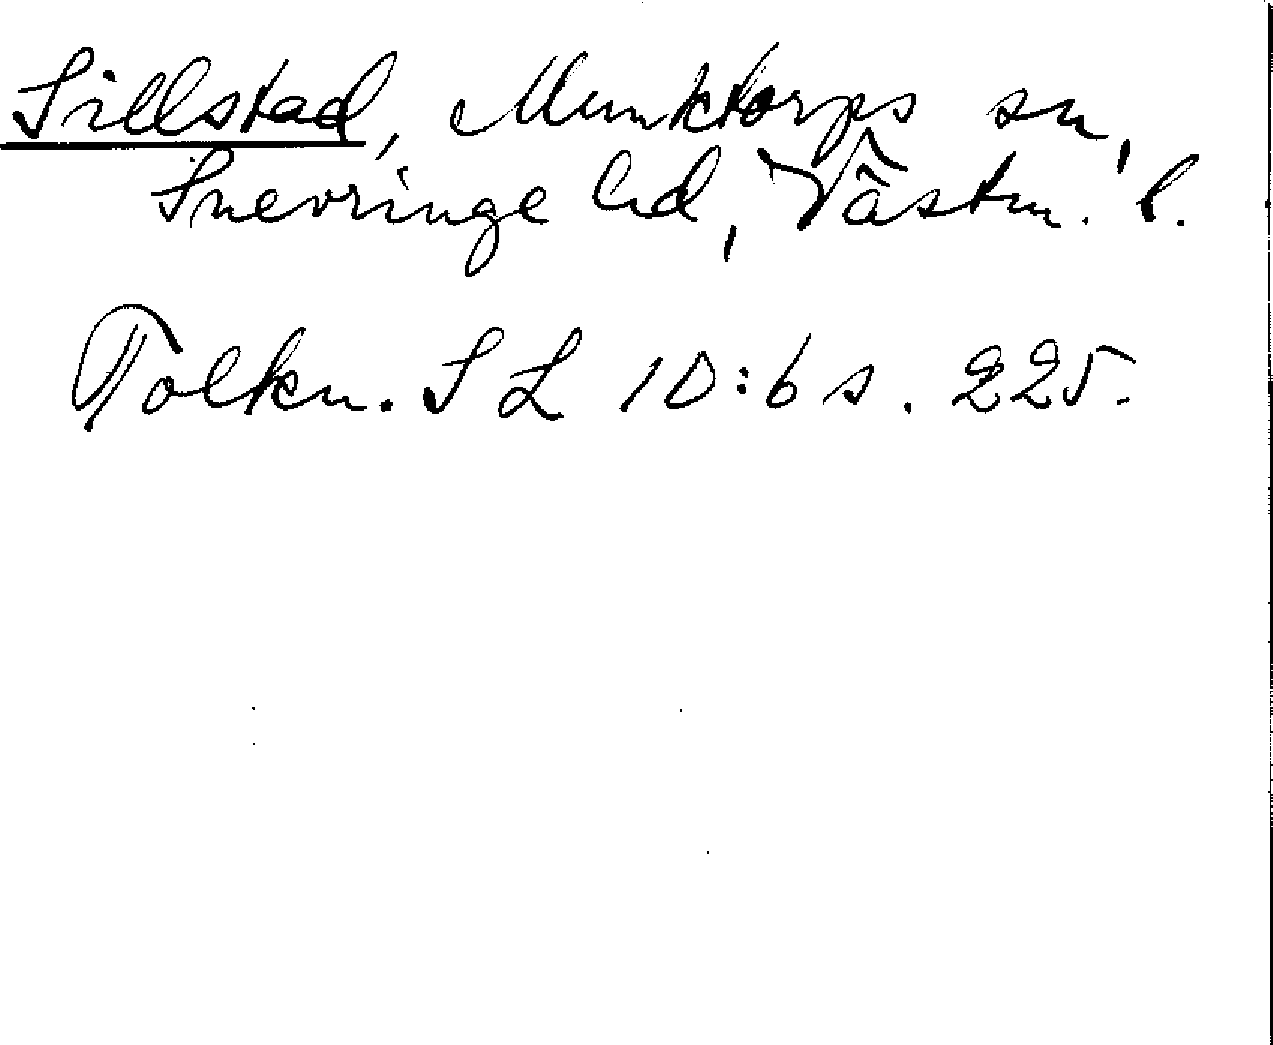 Sillstad, Munktorps sn,
Snevringe hd, Västm. l.
Tolkn. SL 10:6 s. 225.